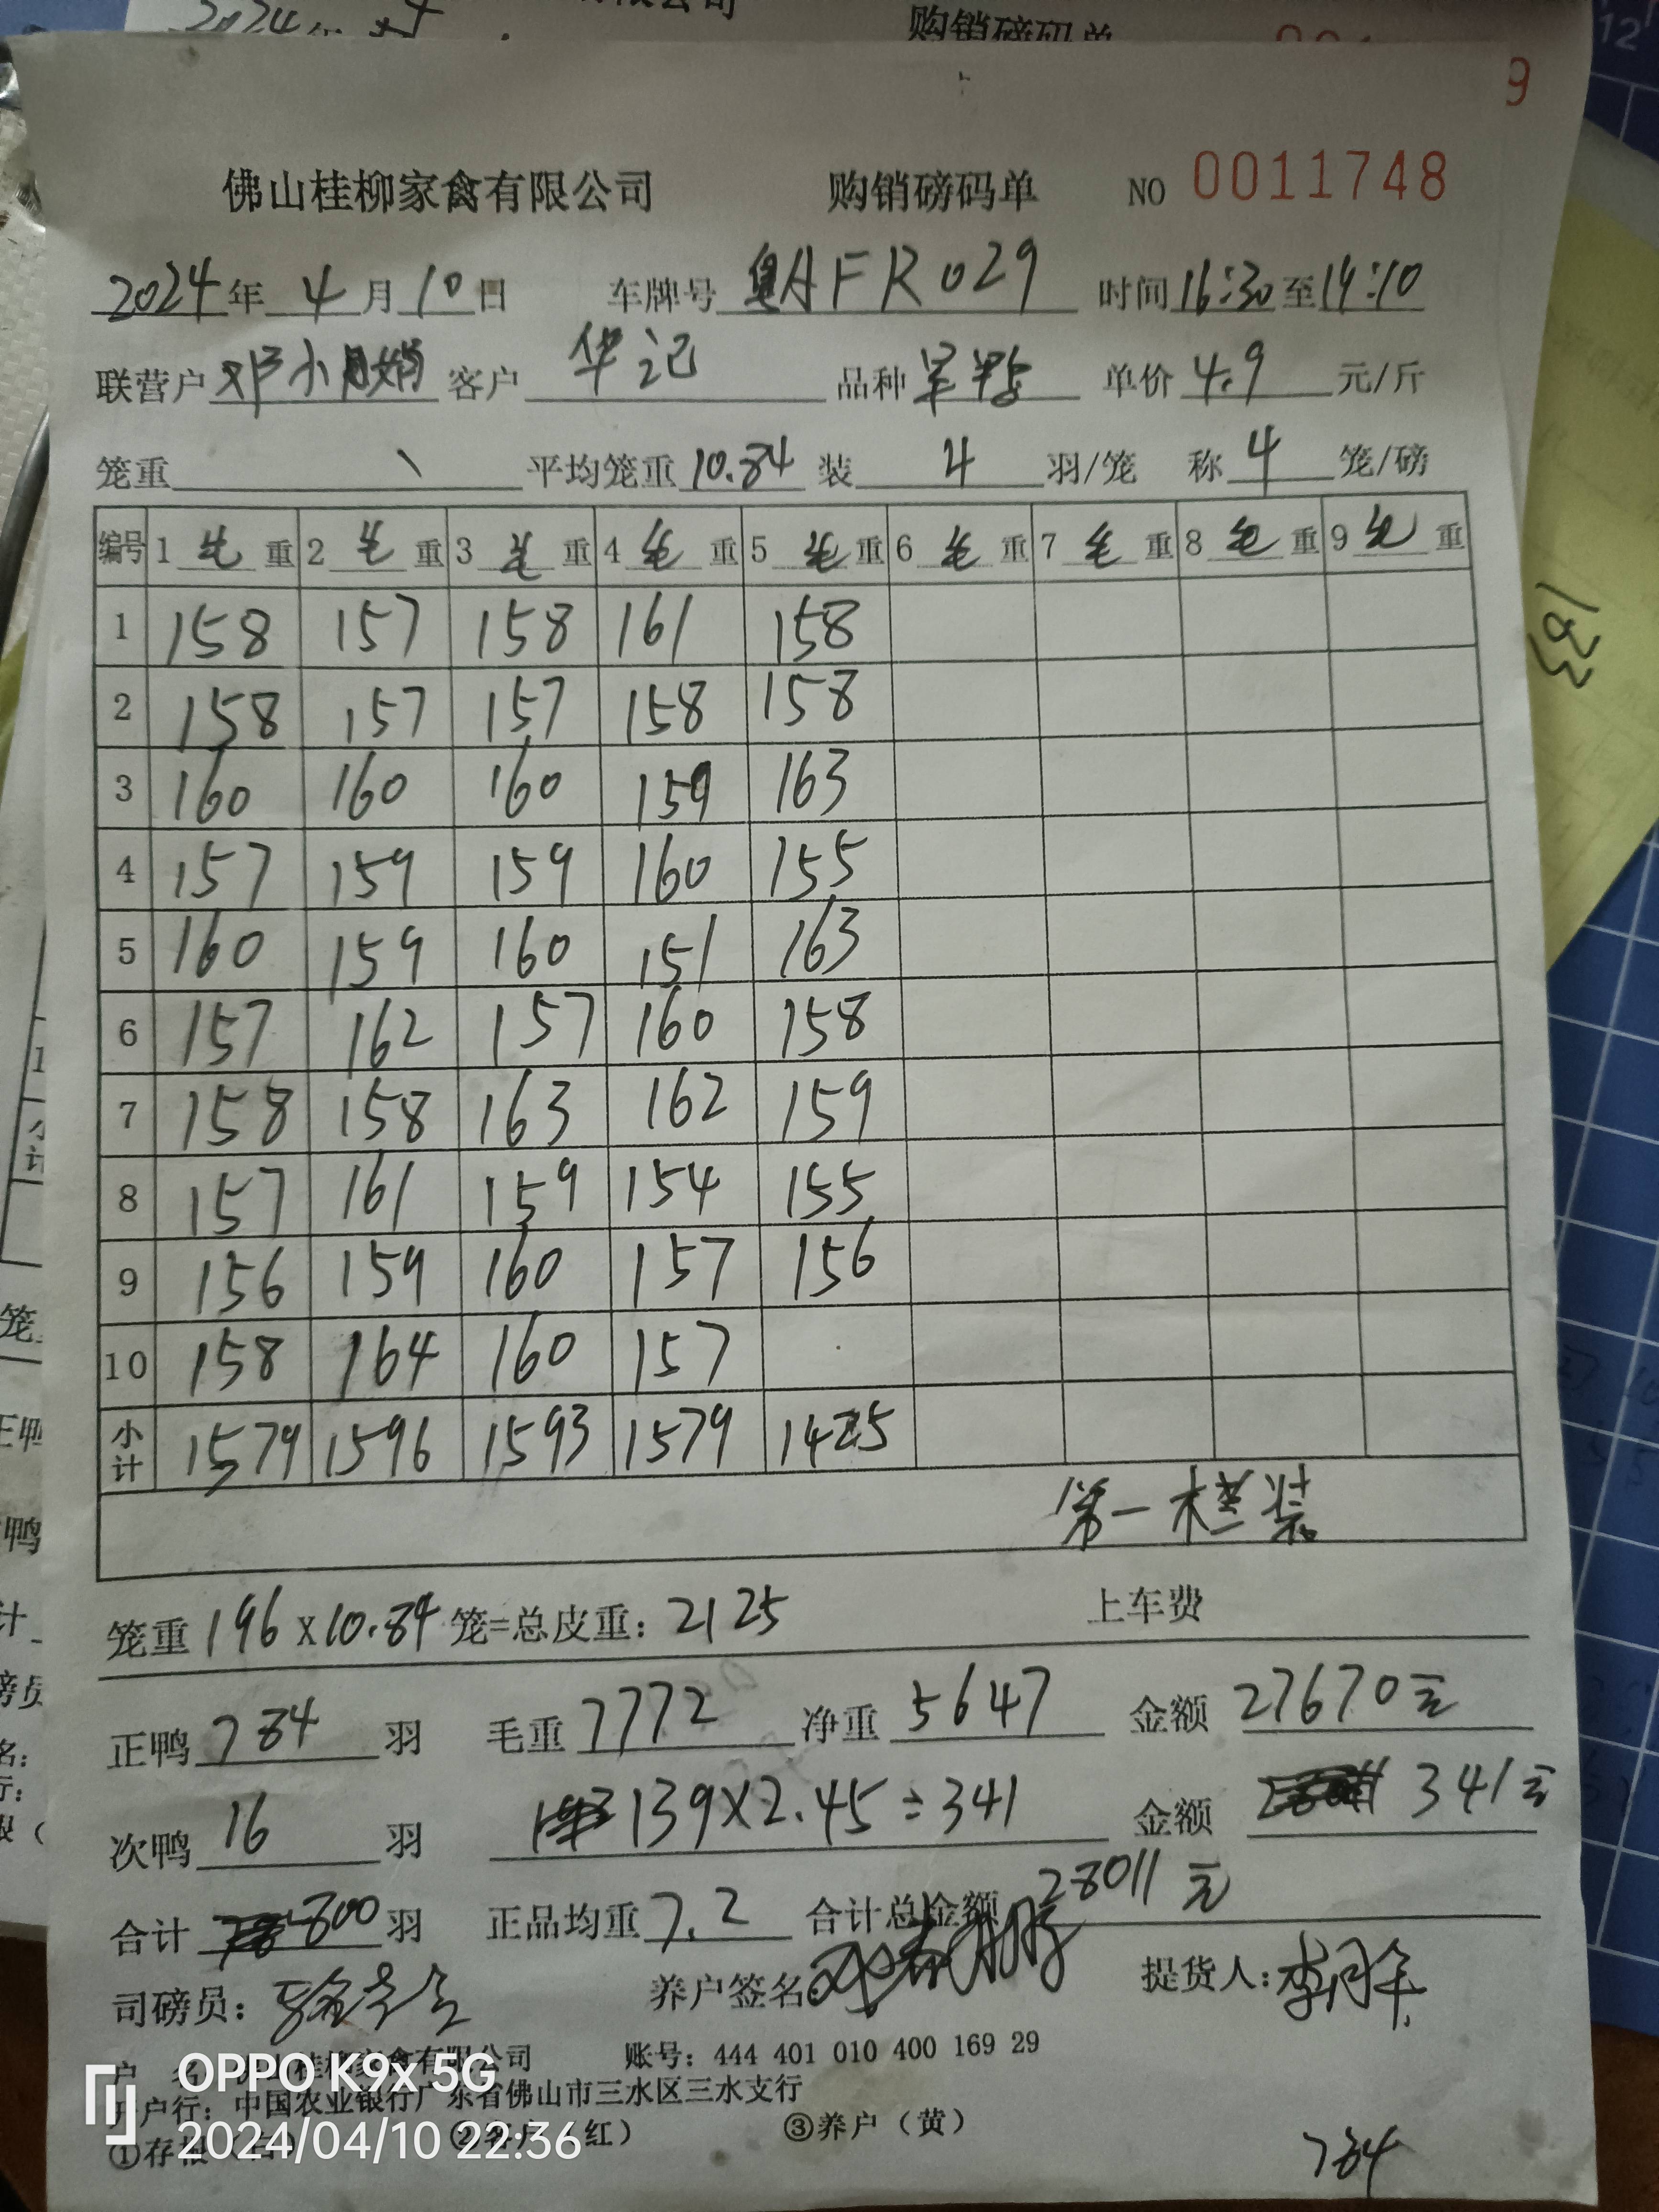 2024年
购销磅码单
9
佛山桂柳家禽有限公司 购销磅码单 NO 0011748
2024年 4月10日 车牌号 粤AFR029 时间16:30至19:10
联营户 邓小娟 客户 华记 品种 单价 4.9 元/斤
笼重 \ 平均笼重 10.84 装 4 羽/笼 称 4 笼/磅
编号 1 毛 重 2 毛 重 3 毛 重 4 毛 重 5 毛 重 6 毛 重 7 毛 重 8 毛 重 9 毛 重
1 158 157 158 161 158
2 158 157 157 158 158
3 160 160 160 159 163
4 157 159 159 160 155
5 160 159 160 151 163
6 157 162 157 160 158
7 158 158 163 162 159
8 157 161 159 154 155
9 156 159 160 157 156
10 158 164 160 157
小计 1579 1596 1593 1579 1425
第一栏装
笼重 196 x 10.84 笼=总皮重: 2125 上车费
正鸭 784 羽 毛重 7772 净重 5647 金额 27670元
次鸭 16 羽 139X2.45=341 金额 341元
合计 800 羽 正品均重 7.2 合计总金额 28011元
司磅员: 养户签名: 提货人:
户 名: 佛山桂柳家禽有限公司 账号: 444 401 010 400 169 29
开户行: 中国农业银行广东省佛山市三水区三水支行
①存根(白) ②客户(红) ③养户(黄)
784
163
OPPO K9x 5G
2024/04/10 22:36